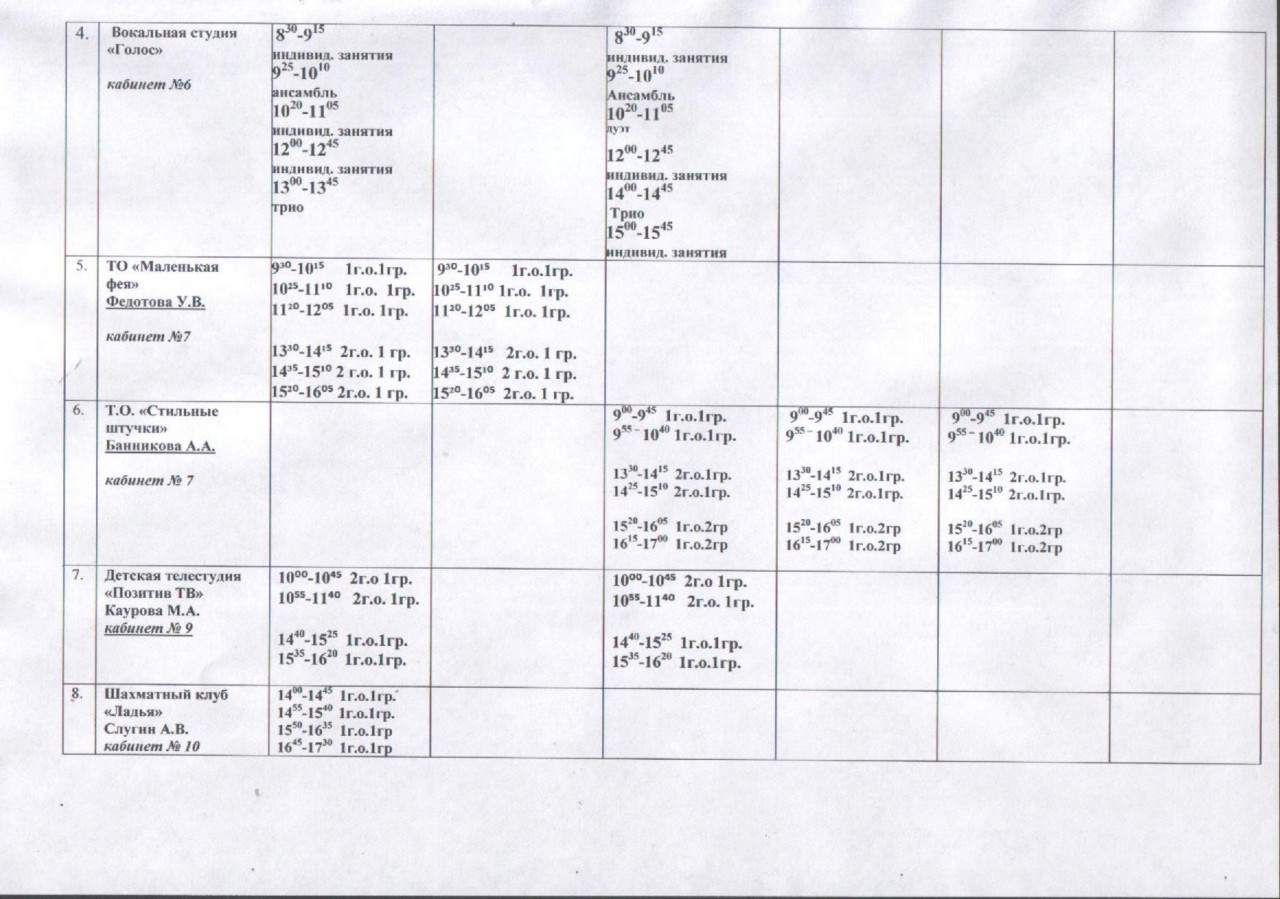 4.
Вокальная студия
«Голос»
кабинет №6
8³⁰-9¹⁵
индивид. занятия
9²⁵-10¹⁰
ансамбль
10²⁰-11⁰⁵
индивид. занятия
12⁰⁰-12⁴⁵
индивид. занятия
13⁰⁰-13⁴⁵
трио
8³⁰-9¹⁵
индивид. занятия
9²⁵-10¹⁰
Ансамбль
10²⁰-11⁰⁵
дуэт
12⁰⁰-12⁴⁵
индивид. занятия
14⁰⁰-14⁴⁵
Трио
15⁰⁰-15⁴⁵
индивид. занятия
5.
ТО «Маленькая
фея»
Федотова У.В.
кабинет №7
9³⁰-10¹⁵ 1г.о.1гр.
10²⁵-11¹⁰ 1г.о. 1гр.
11²⁰-12⁰⁵ 1г.о. 1гр.
13³⁰-14¹⁵ 2г.о. 1 гр.
14³⁵-15¹⁰ 2 г.о. 1 гр.
15²⁰-16⁰⁵ 2г.о. 1 гр.
9³⁰-10¹⁵ 1г.о.1гр.
10²⁵-11¹⁰ 1г.о. 1гр.
11²⁰-12⁰⁵ 1г.о. 1гр.
13³⁰-14¹⁵ 2г.о. 1 гр.
14³⁵-15¹⁰ 2 г.о. 1 гр.
15²⁰-16⁰⁵ 2г.о. 1 гр.
6.
Т.О. «Стильные
штучки»
Банникова А.А.
кабинет № 7
9⁰⁰-9⁴⁵ 1г.о.1гр.
9⁵⁵ – 10⁴⁰ 1г.о.1гр.
13³⁰-14¹⁵ 2г.о.1гр.
14²⁵-15¹⁰ 2г.о.1гр.
15²⁰-16⁰⁵ 1г.о.2гр
16¹⁵-17⁰⁰ 1г.о.2гр
9⁰⁰-9⁴⁵ 1г.о.1гр.
9⁵⁵ – 10⁴⁰ 1г.о.1гр.
13³⁰-14¹⁵ 2г.о.1гр.
14²⁵-15¹⁰ 2г.о.1гр.
15²⁰-16⁰⁵ 1г.о.2гр
16¹⁵-17⁰⁰ 1г.о.2гр
9⁰⁰-9⁴⁵ 1г.о.1гр.
9⁵⁵ – 10⁴⁰ 1г.о.1гр.
13³⁰-14¹⁵ 2г.о.1гр.
14²⁵-15¹⁰ 2г.о.1гр.
15²⁰-16⁰⁵ 1г.о.2гр
16¹⁵-17⁰⁰ 1г.о.2гр
7.
Детская телестудия
«Позитив ТВ»
Каурова М.А.
кабинет № 9
10⁰⁰-10⁴⁵ 2г.о 1гр.
10⁵⁵-11⁴⁰ 2г.о. 1гр.
14⁴⁰-15²⁵ 1г.о.1гр.
15³⁵-16²⁰ 1г.о.1гр.
10⁰⁰-10⁴⁵ 2г.о 1гр.
10⁵⁵-11⁴⁰ 2г.о. 1гр.
14⁴⁰-15²⁵ 1г.о.1гр.
15³⁵-16²⁰ 1г.о.1гр.
8.
Шахматный клуб
«Ладья»
Слугин А.В.
кабинет № 10
14⁰⁰-14⁴⁵ 1г.о.1гр.
14⁵⁵-15⁴⁰ 1г.о.1гр.
15⁵⁰-16³⁵ 1г.о.1гр
16⁴⁵-17³⁰ 1г.о.1гр